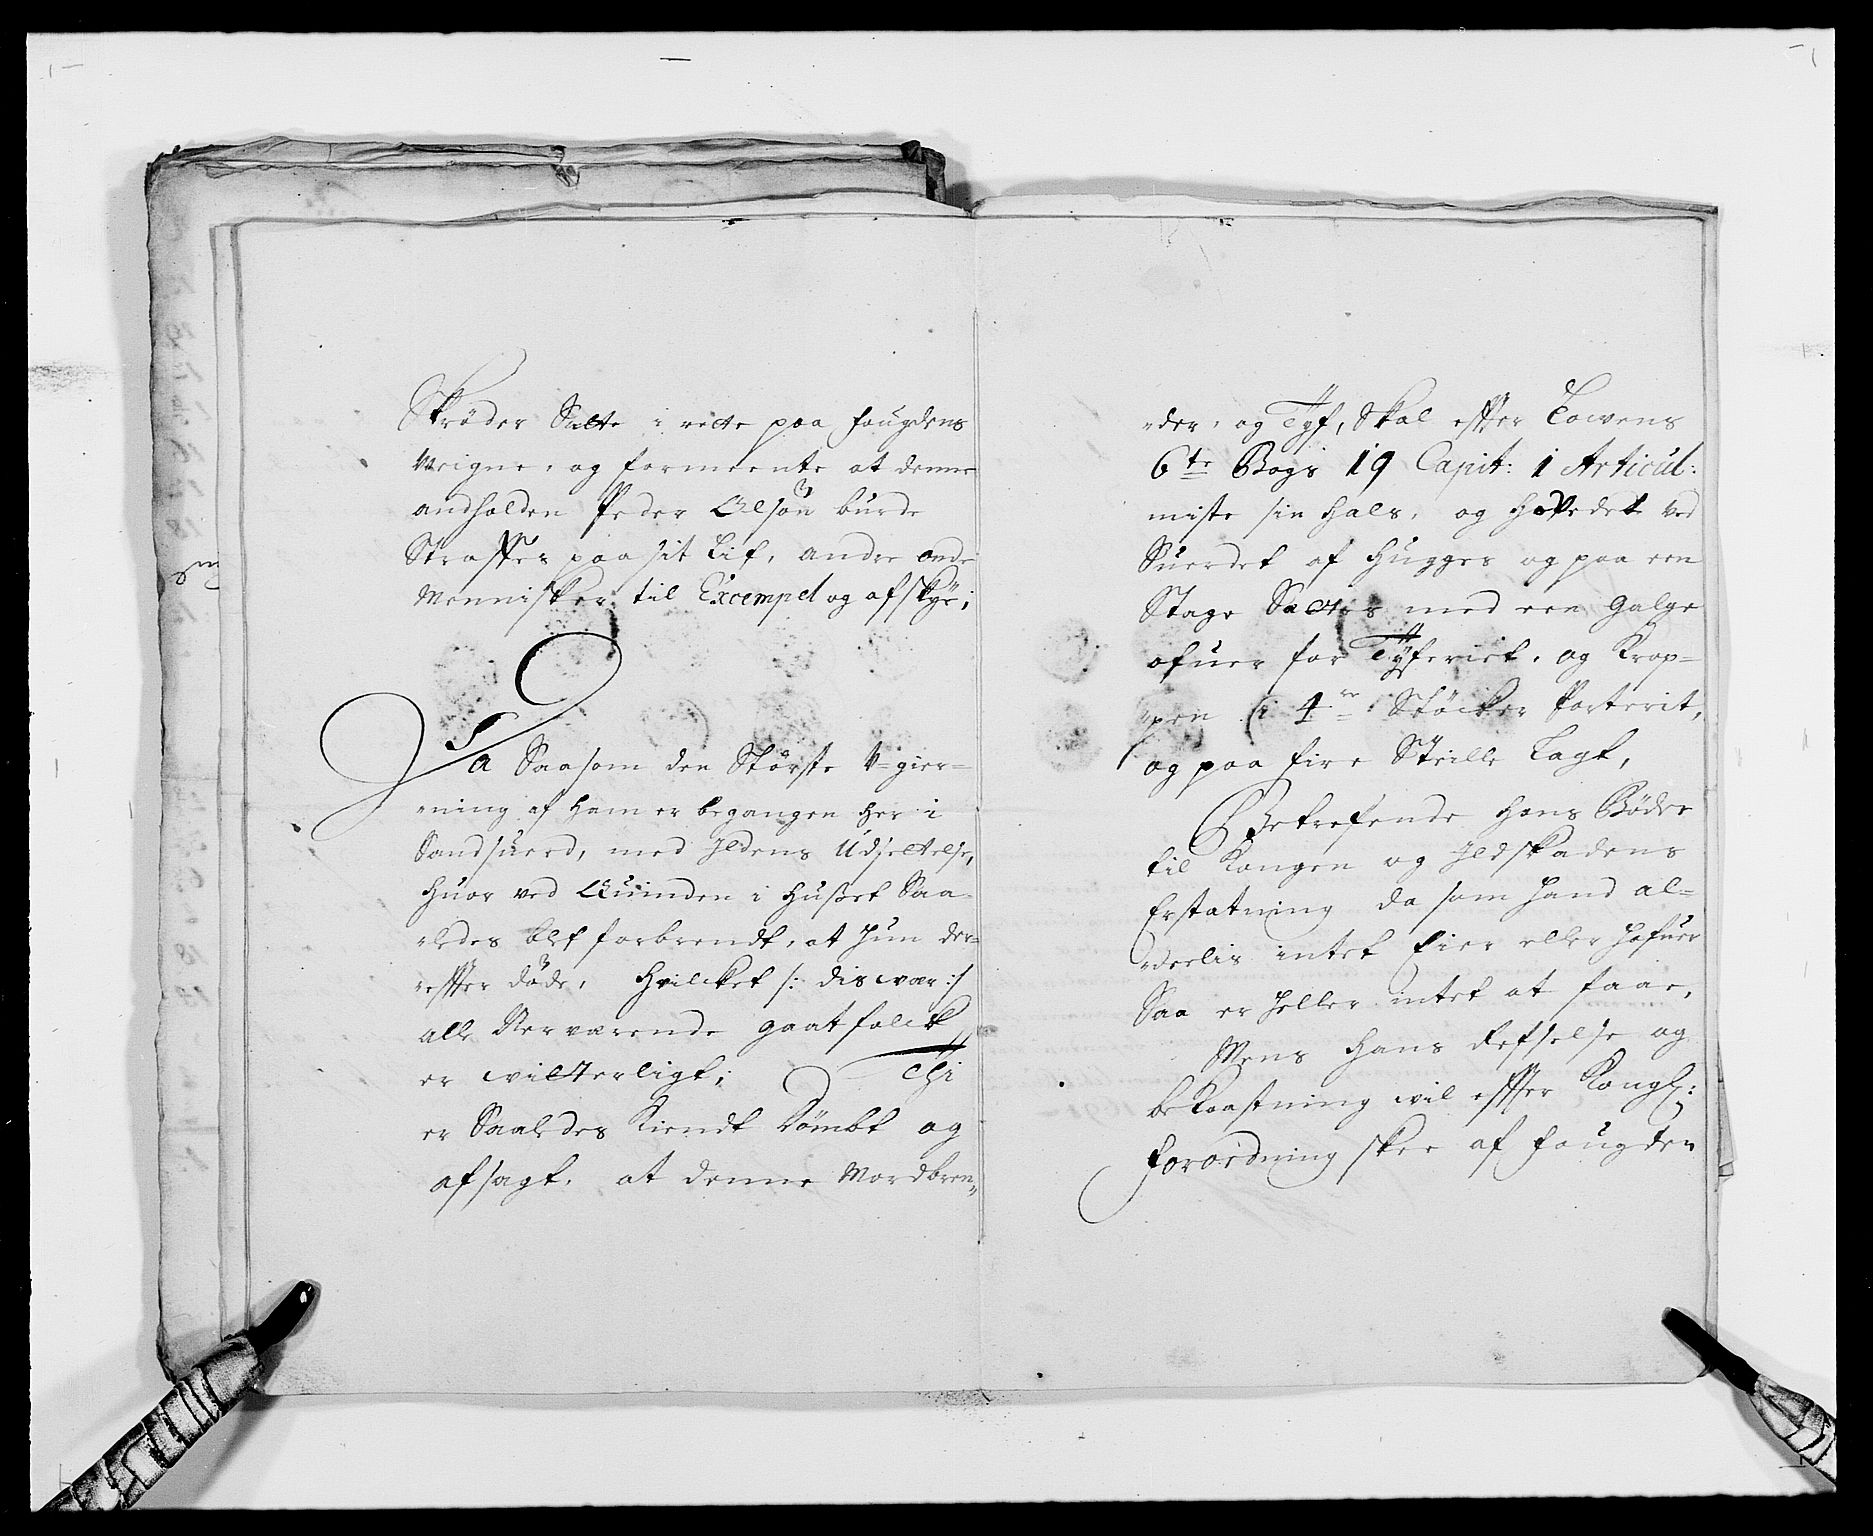 Skrøder Sætte i rette paa fougdens
Weigne, og formeente at denne
andholden Peder Olsøn burde
Straffes paa sit Lif, andre onde
Mennisker til Exempel og afskye;
Da Saasom den Største U-gier=
ning af ham er begangen her i
Sandsuerd, med Ildens Udsettelse,
huor ved Quinden i Huset Saa-
ledes blef forbrendt, at hun der-
effter døde, Hvilcket /: diswær :/
alle Nerværende gaatfolck
er witterligt; Thi
er Saaledes Kiendt Dømbt og
afsagt, at denne Mordbren=
der, og Tyf, Skal effter Lowens
6te Bogs 19 Capit: 1 Articul:
miste sin hals, og hofvedet ved
Suerdet af hugges og paa een
Stage Sættes med een Galge
ofuer for Tyferiet, og Krop=
pen i 4re Støcker Parterit,
og paa fire Steille Lagt,
Betrefende hans Bøder
til Kongen og Ildskadens
Erstatning da som hand al=
deelis intet Eier eller hafuer
Saa er heller intet at faae,
Mens hans Refselse og
bekaastning wil effter Kongl:
forordning skee af fougden